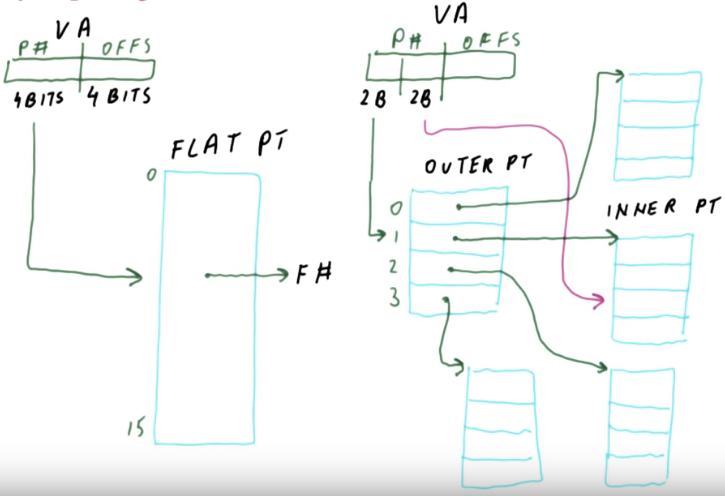 VA
P# OFFS
4BITS 4 BITS
FLAT PT
0
F#
15
VA
P# OFFS
2B 2B
OUTER PT
0
1
2
3
INNER PT